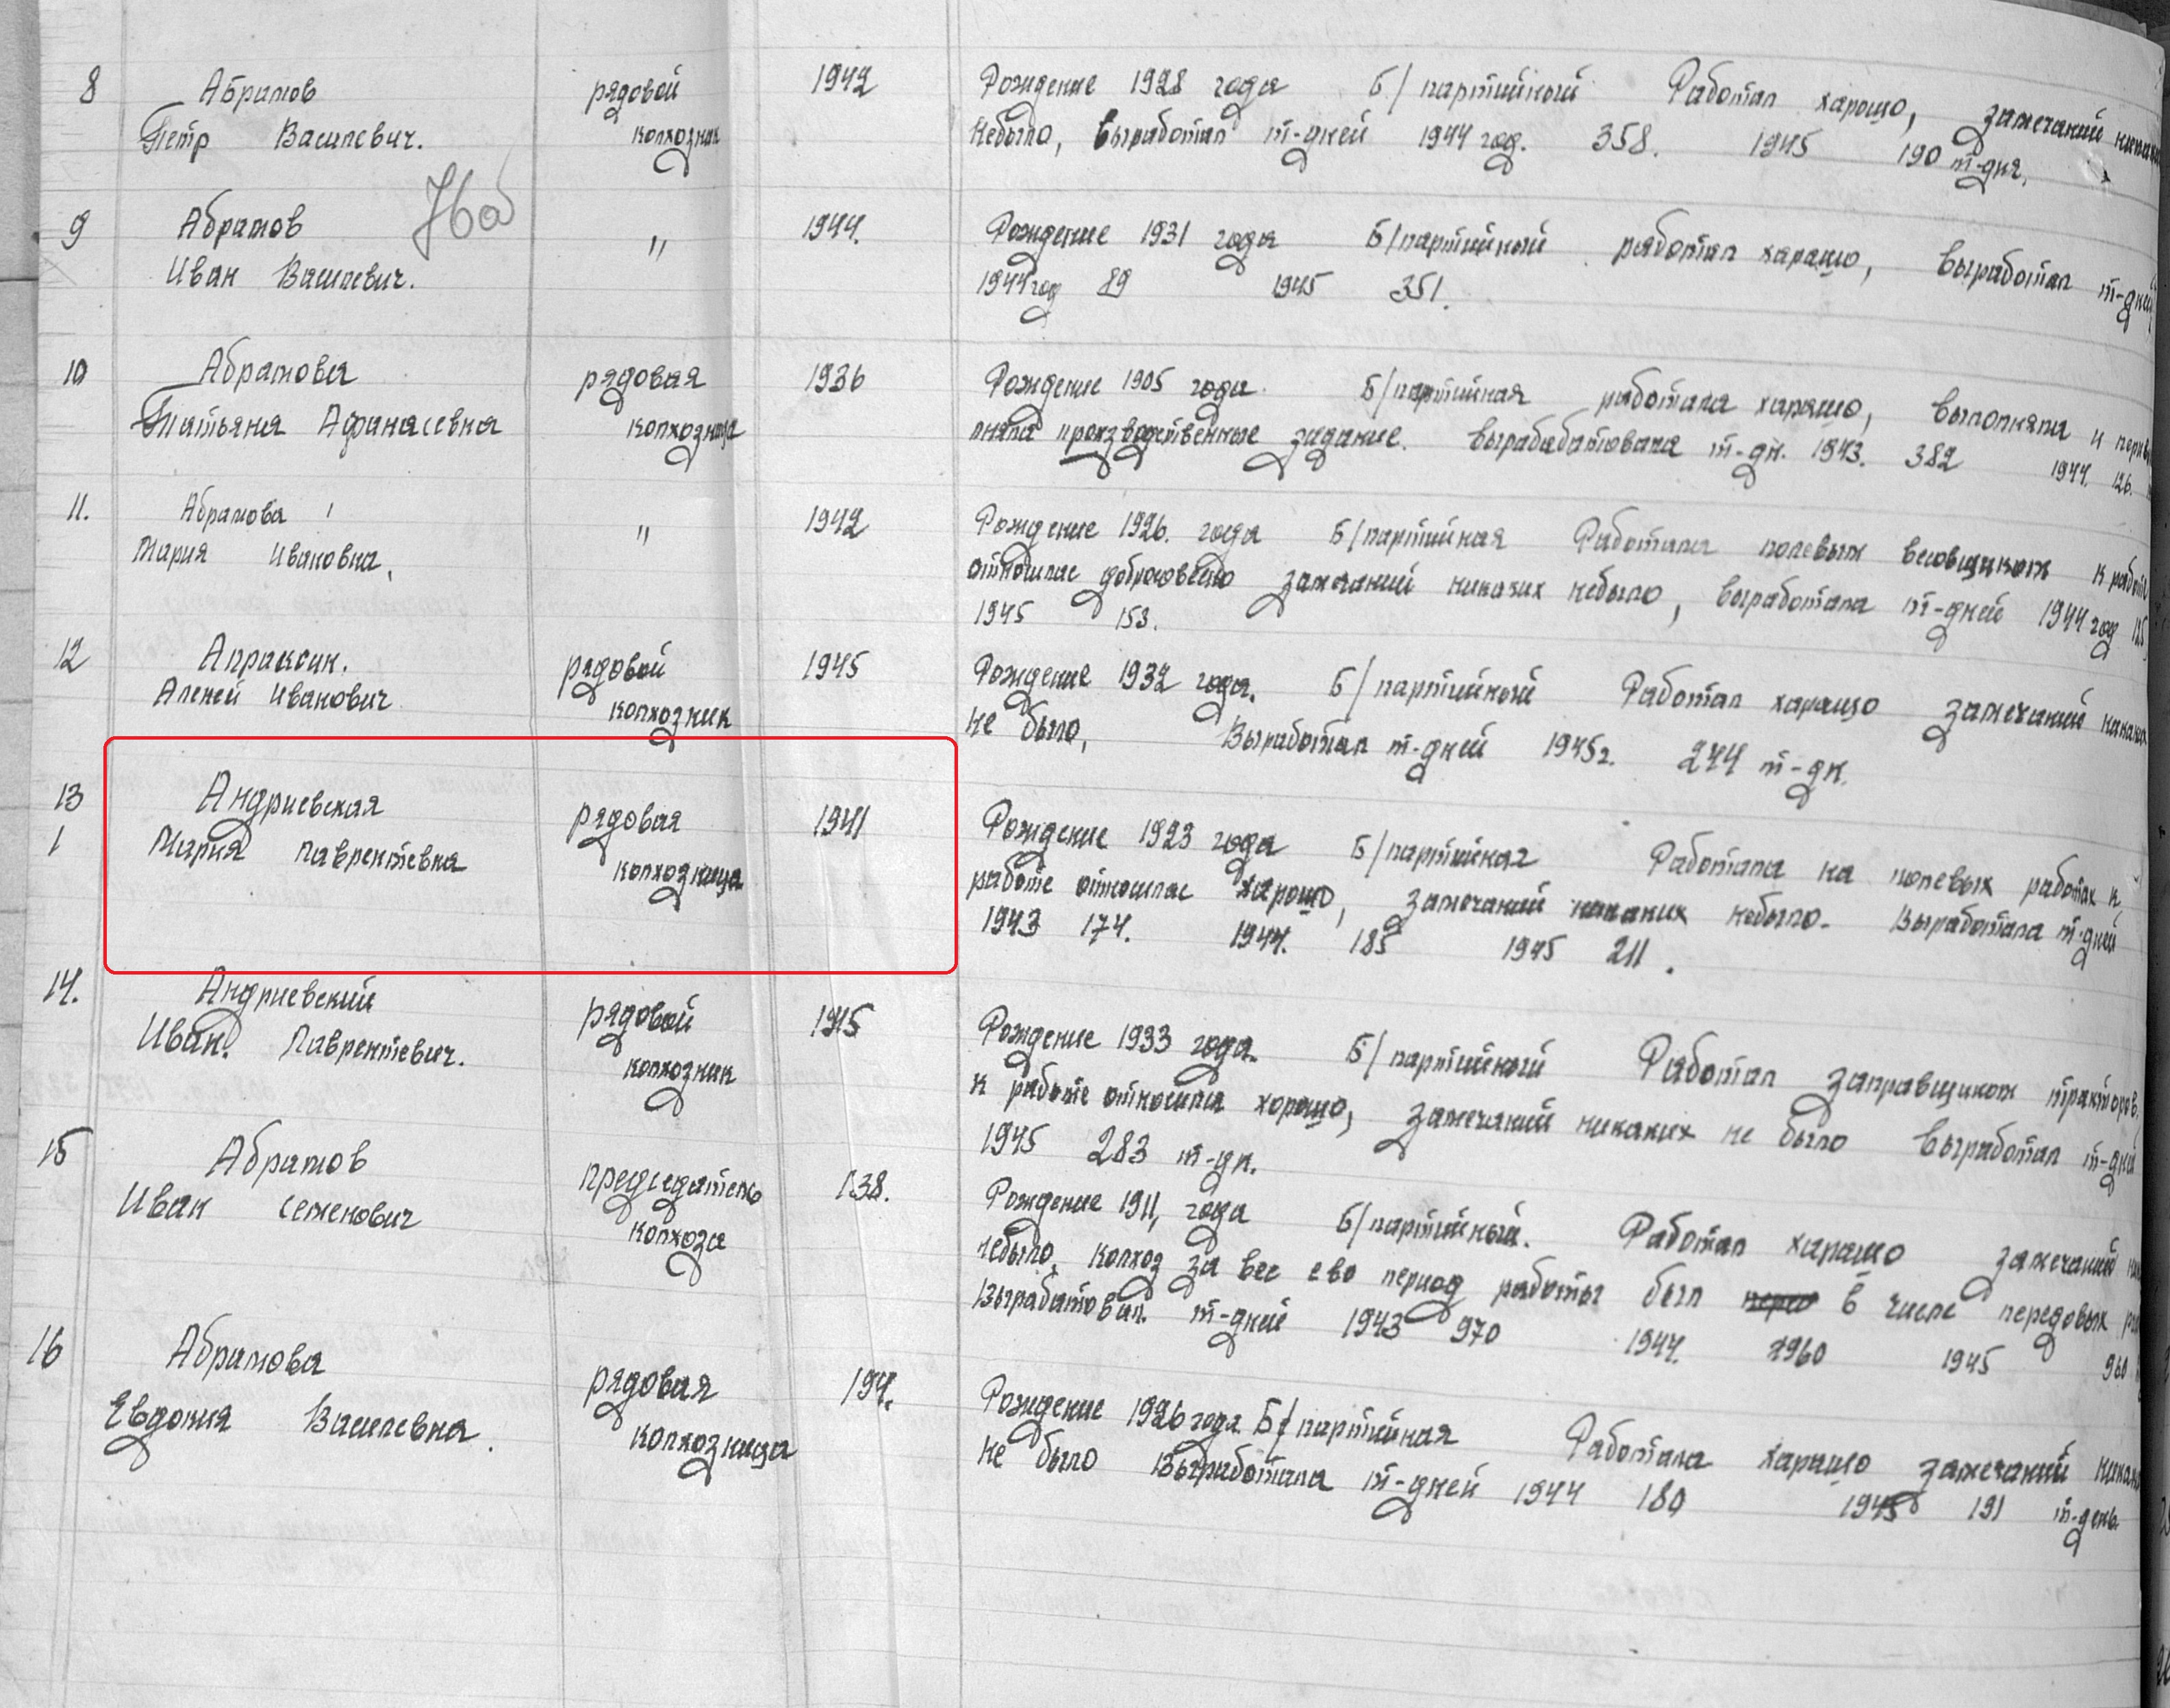 8 Абрамов рядовой 1942 Рождение 1928 года Б/партийный Работал харошо, замечаний
Петр Василевич. колхозник небыло, выработал т-дней 1944 год. 358. 1945 190 т-дня.
76об
9 Абрамов " 1944. Рождение 1931 года Б/партийный работал харашо, выработал т-дней
Иван Василевич. 1944 год 89 1945 351.
10 Абрамова рядовая 1936 Рождение 1905 года. Б/партийная работала харашо, выполняла и
Татьяна Афанасевна колхозница лняла производственные задание. вырабабатовала т-дн. 1943. 382 1944. 126.
11. Абрамова " 1942 Рождение 1926. года Б/партийная Работала полевым весовщиком к работе
Мария Ивановна. отношлас добросовесно замечаний никаких небыло, выработала т-дней 1944 год 125
1945 153.
12 Апраксин. рядовой 1945 Рождение 1932 года. Б/партийный Работал харашо замечаний никаких
Алексей Иванович колхозник не было, Выработал т-дней 1945г. 244 т-дн.
13 Андриевская рядовая 1941 Рождение 1923 года Б/партийная Работала на полевых работах к
1 Мария Лаврентевна колхозница работе отношлас харошо, замечаний никаких небыло. Выработала т-дней
1943 174. 1944. 185 1945 211.
14. Андриевский рядовой 1945 Рождение 1933 года. Б/партийный Работал заправщиком тракторов.
Иван. Лаврентевич. колхозник к работе относился хорошо, замечаний никаких не было выработал т-дней
1945 283 т-дн.
15 Абрамов председатель 138. Рождение 1911, года Б/партийный. Работал харашо замечаний
Иван Семенович колхоза небыло, колхоз за вес ево период работы был в числе передовых
Вырабатовал. т-дней 1943 970 1944. 2960 1945 960
16 Абрамова рядовая 194. Рождение 1926 года Б/партийная Работала харашо замечаний никаких
Евдокия Василевна. колхозница не было Выработала т-дней 1944 180 1945 191 т-день